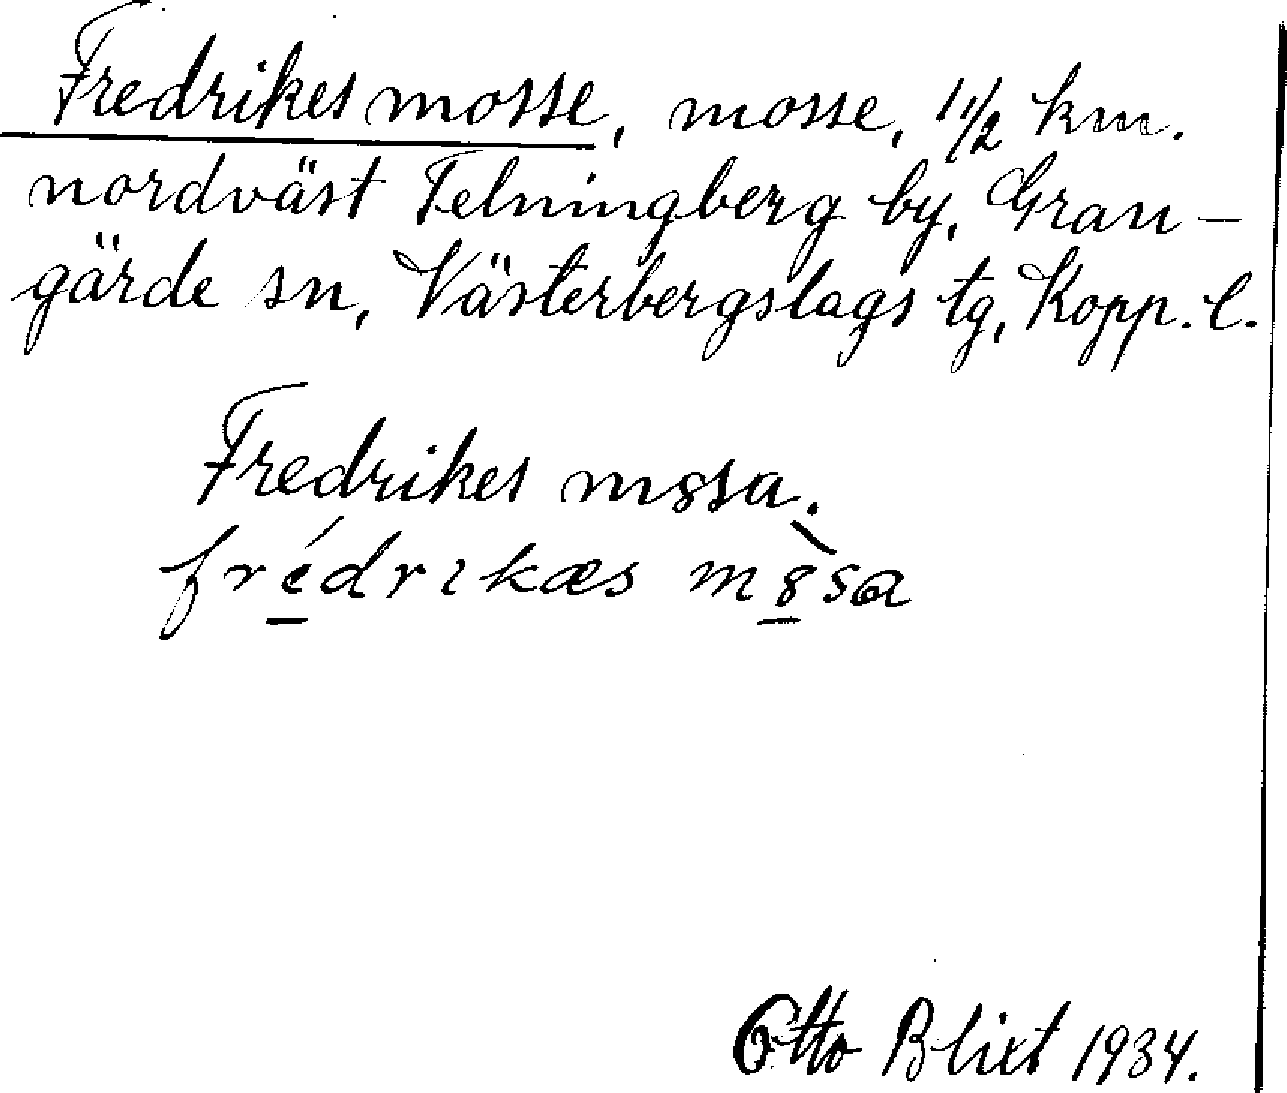 Fredrikes mosse, mosse, 1 1/2 km.
nordväst Telningberg by, Gran-
gärde sn, Västerbergslags tg, Kopp. l.
Fredrikes m8ssa.
frédrikæs m8̀sa
Otto Blixt 1934.